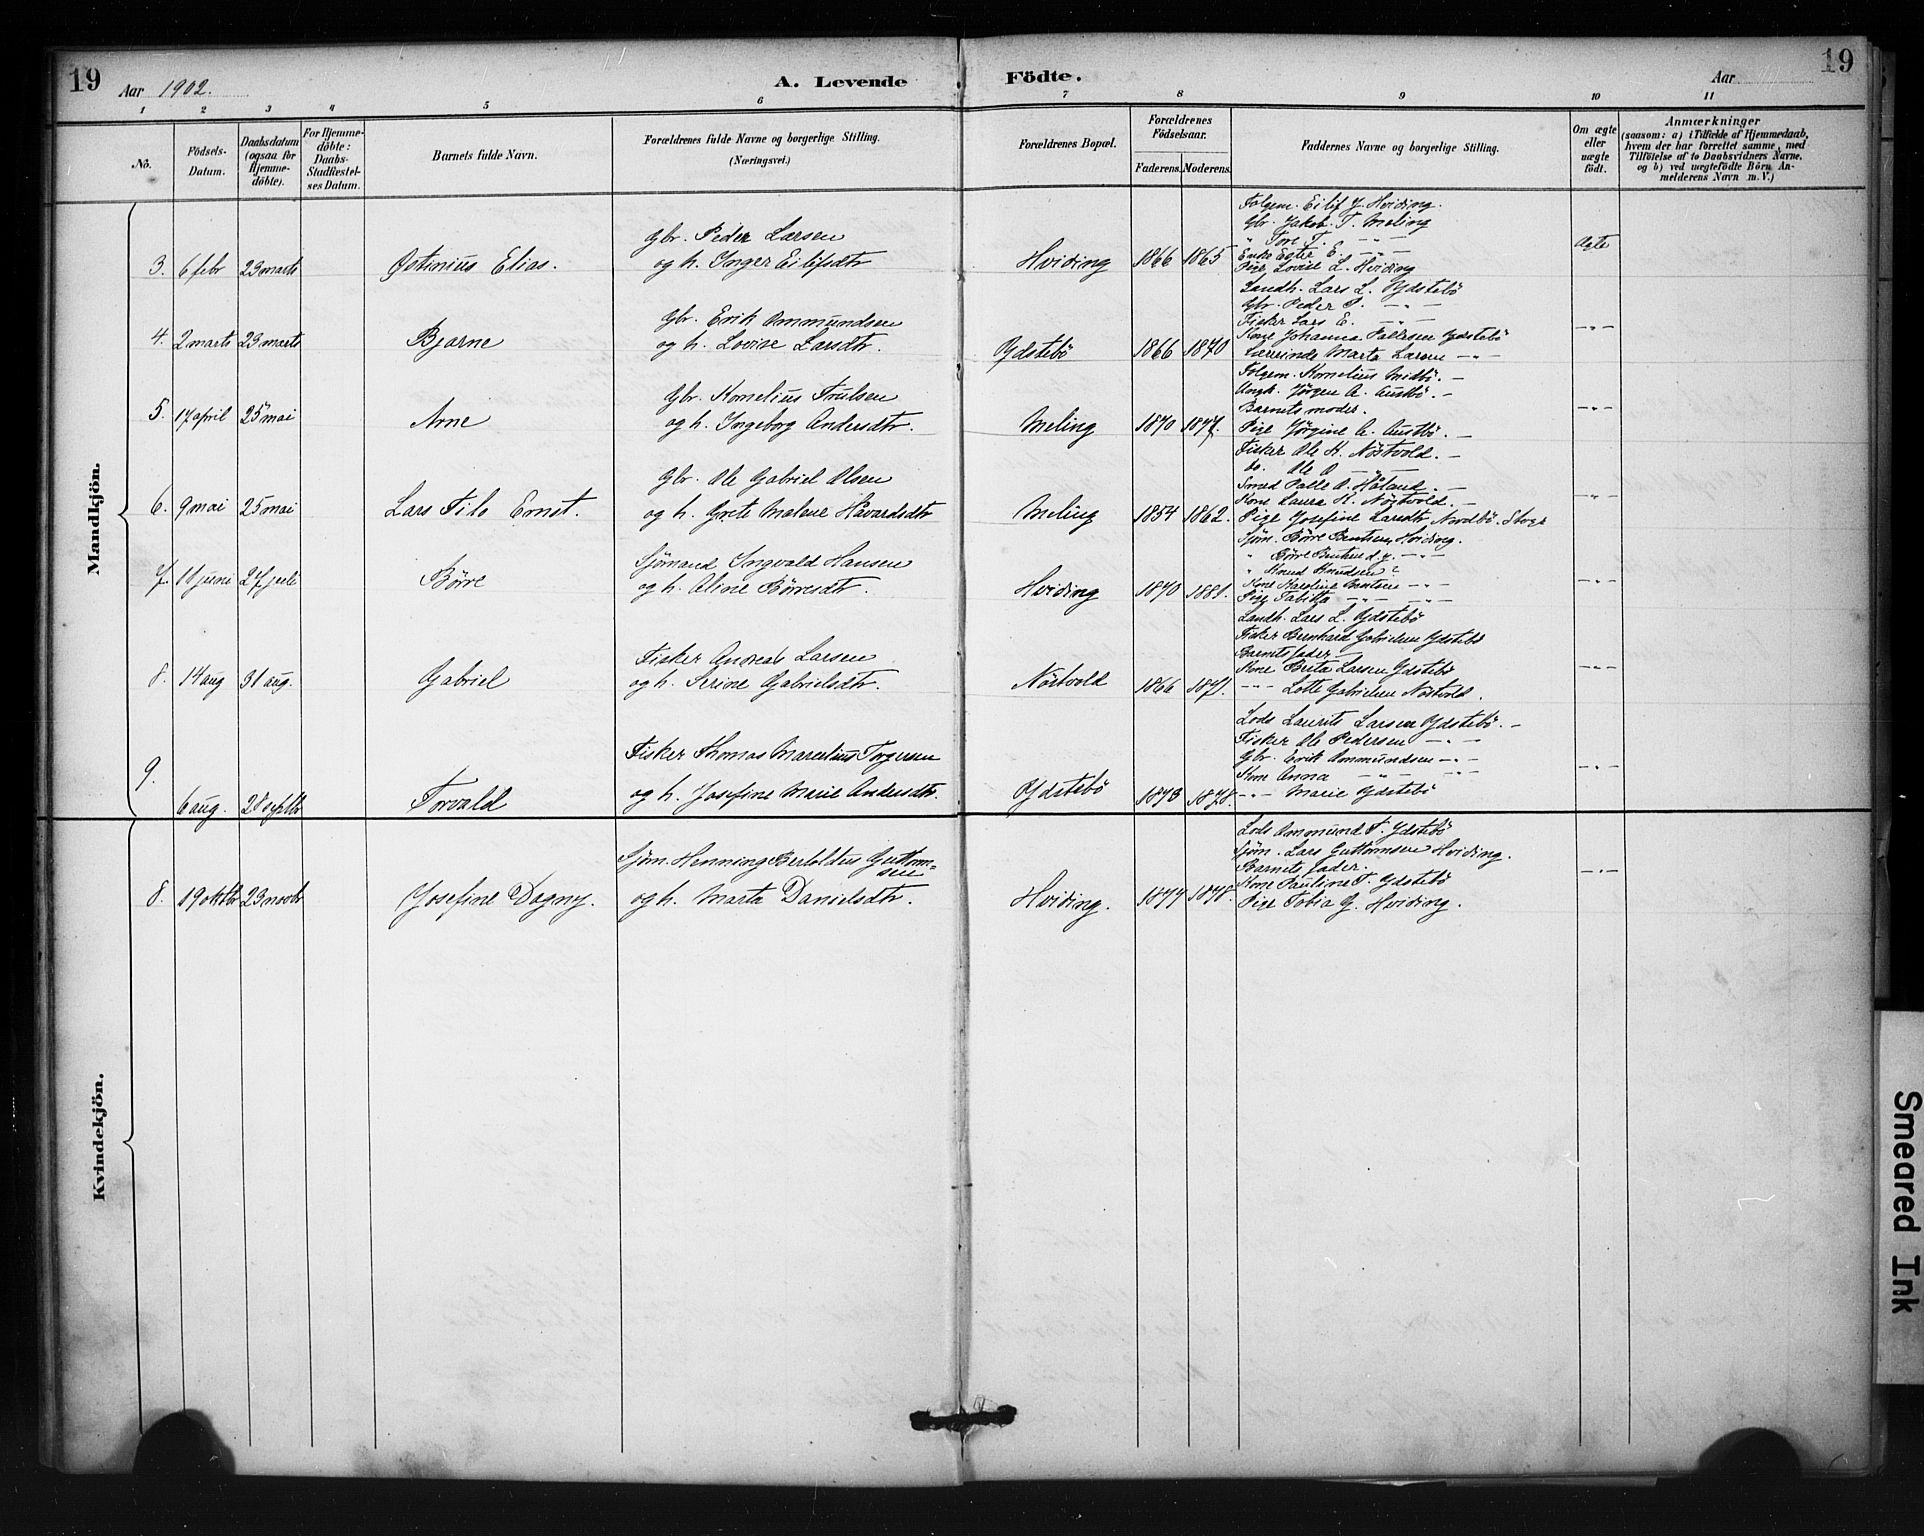 19
Aar 1902.
A. Levende Födte.
Aar
19
1 2 3 4 5 6 7 8 9 10 11
Nö.
Födsels-Datum.
Daabsdatum (ogsaa for Hjemmedöbte).
For Hjemmedöbte: Daabs-Stadfæstelses Datum.
Barnets fulde Navn.
Forældrenes fulde Navne og borgerlige Stilling.
(Næringsvei.)
Forældrenes Bopæl.
Forældrenes Födselsaar.
Faderens. Moderens.
Faddernes Navne og borgerlige Stilling.
Om ægte eller uægte födt.
Anmærkninger
(saasom: a) i Tilfælde af Hjemmedaab,
hvem der har forrettet samme, med
Tilföielse af to Daabsvidners Navne,
og b) ved uægtefödte Börn An-
melderens Navn m. V.)
Mandkjön.
3. 6 febr 23 marts
Ostenius Elias.
Gbr. Peder Larsen
og h. Inger Eilifsdtr
Hviding 1866 1865
Folgem. Eilif J. Hviding.
Gbr. Jakob T. Meling
" Tore T. — " —
Enke Ester E. — " —
Pige Lovise L. Hviding
Ægte
4. 2 marts 23 marts
Bjarne
Gbr. Erik Ommundsen
og h. Lovise Larsdtr.
Ydstebö 1866 1870
Landh. Lars L. Ydstebö
Gbr. Peder P. — " —
Fisker Lars E. — " —
Kone Johanna Pallesen Ydstebö
Lærerinde Marta Larsen — " —
— " —
5. 17 april 25 mai
Arne
Gbr. Kornelius Trulsen
og h. Ingeborg Andersdtr.
Meling 1870 1877.
Folgem. Kornelius Midbö. —
Ungk. Jörgen A. Austbö. —
Barnets moder.
Pige Jörgine A. Austbö. —
— " —
6. 9 mai 25 mai
Lars Filo Ernst.
Gbr. Ole Gabriel Olsen
og h. Grete Malene Håvardsdtr
Meling 1854 1862.
Fisker Ole K. Nöstvold. —
do. Ole O — " —
Smed Palle O. Håland. —
Kone Laura K. Nöstvold. —
Pige Josefine Larsdtr Nordbö.
— " —
7. 18 juni 27 juli
Börre
Sjömand Ingvald Hansen
og h. Oline Börresdtr.
Hviding 1870 1881.
Sjöm. Börre Bentsen Hviding.
" Börre Bentsen d. y. — " —
" Knud Knudsen
Kone Karoline Bentsen — " —
Pige Tabitta — " — — " —
— " —
8. 14 aug 31 aug.
Gabriel
Fisker Andreas Larsen
og h. Serine Gabrielsdtr.
Nöstvold 1866 1871.
Landh. Lars L. Ydstebö
Fisker Bernhard Gabrielsen Ydstebö
Barnets fader —
Kone Berta Larsen Ydstebö
— " — Lotte Gabrielsen Nöstvold.
— " —
9. 6 aug. 28 septbr
Torvald
Fisker Thomas Marcelius Torgersen
og h. Josefine Marie Andersdtr.
Ydstebö 1873 1878.
Lods Laurits Larsen Ydstebö. —
Fisker Ole Pedersen — " —
Gbr. Erik Ommundsen — " —
Kone Anna — " — — " —
— " — Marie Ydstebö
— " —
Kvindekjön.
8. 19 oktbr 23 novbr
Josefine Dagny.
Sjöm. Henning Bertoldus Guttorm-
sen
og h. Marta Danielsdtr.
Hviding. 1877 1878.
Lods Ommund T. Ydstebö
Sjöm. Lars Guttormsen Hviding.
Barnets fader.
Kone Pauline T. Ydstebö
Pige Tobia G. Hviding.
— " —
Smeared Ink